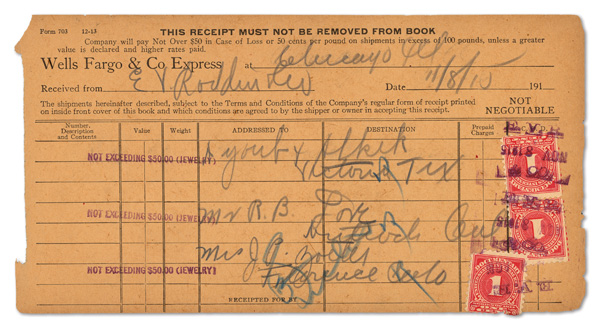 Form 703 12-13 THIS RECEIPT MUST NOT BE REMOVED FROM BOOK
Company will pay Not Over $50 in Case of Loss or 50 cents per pound on shipments in excess of 100 pounds, unless a greater
value is declared and higher rates paid.
Wells Fargo & Co Express at Chicago Ill
Received from E V Roddin Date 11/8/15 191
The shipments hereinafter described, subject to the Terms and Conditions of the Company's regular form of receipt printed
on inside front cover of this book and which conditions are agreed to by the shipper or owner in accepting this receipt.
NOT
NEGOTIABLE
Number, Description and Contents Value Weight ADDRESSED TO DESTINATION Prepaid Charges
NOT EXCEEDING $50.00 (JEWELRY)
Victoria Tex
NOT EXCEEDING $50.00 (JEWELRY) Mr R. B.
NOT EXCEEDING $50.00 (JEWELRY) Mrs J. A.
Florence Colo
E. V. R.
NOV 8 1915
1
DOCUMENTARY
1
DOCUMENTARY
1
DOCUMENTARY
RECEIPTED FOR BY